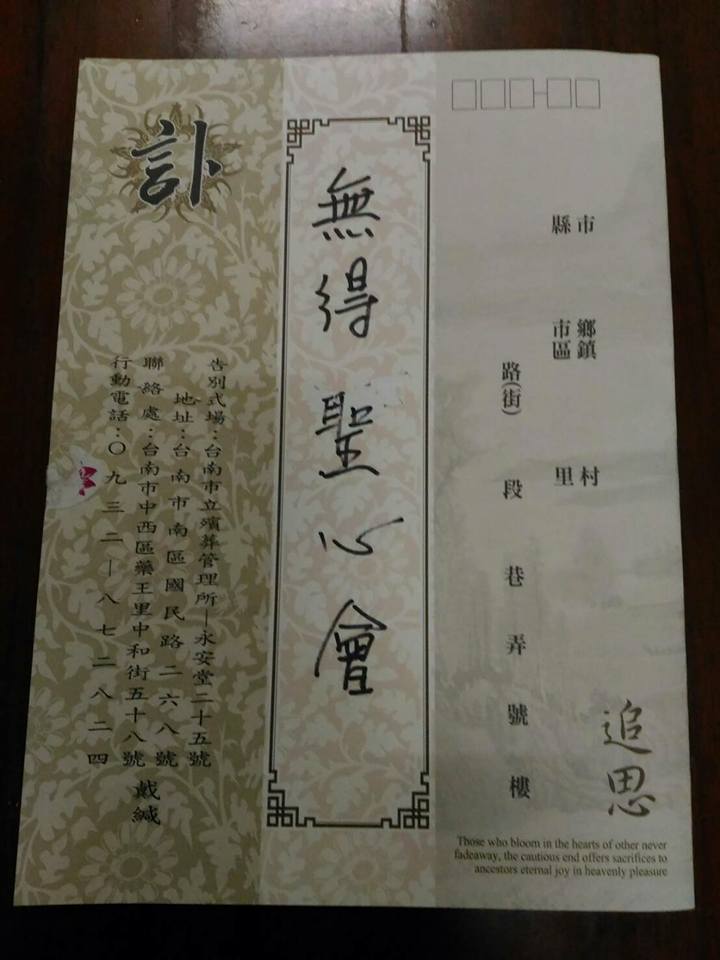 市
縣
鄉鎮
市區
村
里
路(街)段巷弄號樓
追思
Those who bloom in the hearts of other never
fadeaway, the cautious end offers sacrifices to
ancestors eternal joy in heavenly pleasure
無得聖心會
訃
告別式場：台南市立殯葬管理所—永安堂二十五號
地址：台南市南區國民路二六八號
聯絡處：台南市中西區藥王里中和街五十八號 戴緘
行動電話：〇九三二—八七二八二四